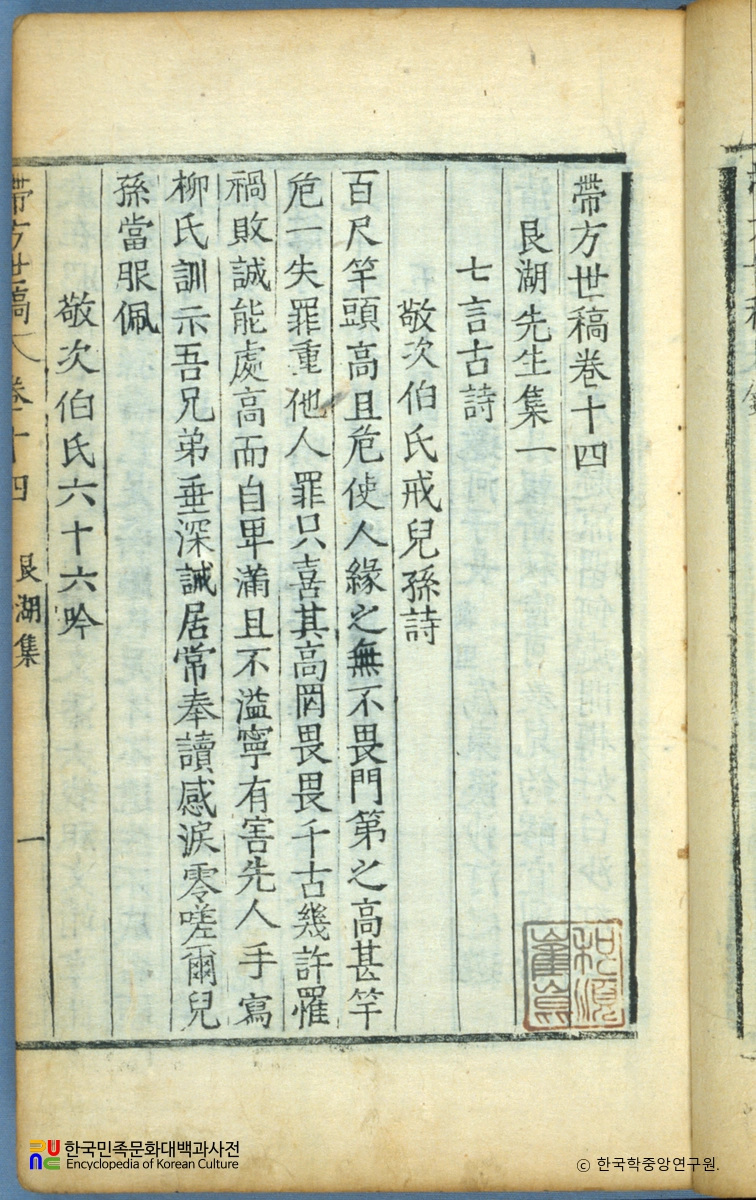 帶方世稿卷十四
艮湖先生集一
七言古詩
敬次伯氏戒兒孫詩
百尺竿頭高且危使人緣之無不畏門第之高甚竿
危一失罪重他人罪只喜其高罔畏畏千古幾許罹
禍敗誠能處高而自卑滿且不溢寧有害先人手寫
柳氏訓示吾兄弟垂深誡居常奉讀感淚零嗟爾兒
孫當服佩
敬次伯氏六十六吟
帶方世稿 卷十四 艮湖集 一
한국민족문화대백과사전
Encyclopedia of Korean Culture
ⓒ 한국학중앙연구원.